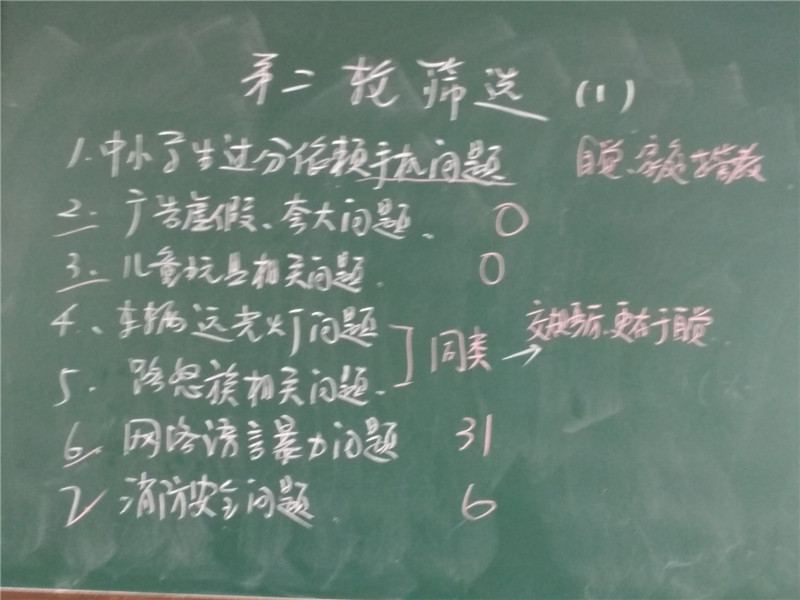 第二轮筛选 (1)
1.中小学生过分依赖手机问题 自觉、家庭教
2. 广告虚假、夸大问题. 0
3. 儿童玩具相关问题. 0
4、车辆远光灯问题
5. 路怒族相关问题.
同类 → 交规 更在于自觉
6. 网络语言暴力问题 31
7 消防安全问题. 6